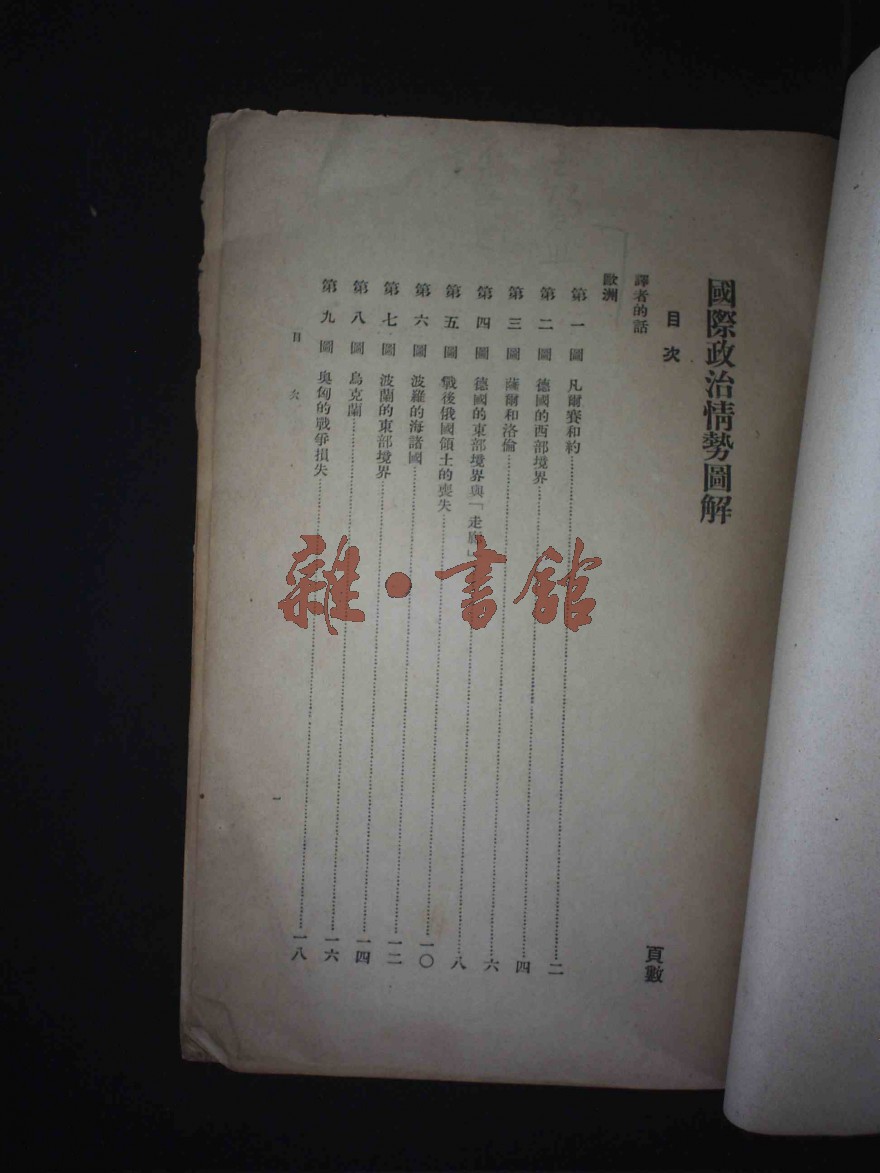 國際政治情勢圖解
目次
頁數
譯者的話
歐洲
第一圖 凡爾賽和約……二
第二圖 德國的西部境界……四
第三圖 薩爾和洛倫……六
第四圖 德國的東部境界與「走廊」……八
第五圖 戰後俄國領土的喪失……一〇
第六圖 波羅的海諸國……一二
第七圖 波蘭的東部境界……一四
第八圖 烏克蘭……一六
第九圖 奧匈的戰爭損失……一八
目次
一
雜·書館